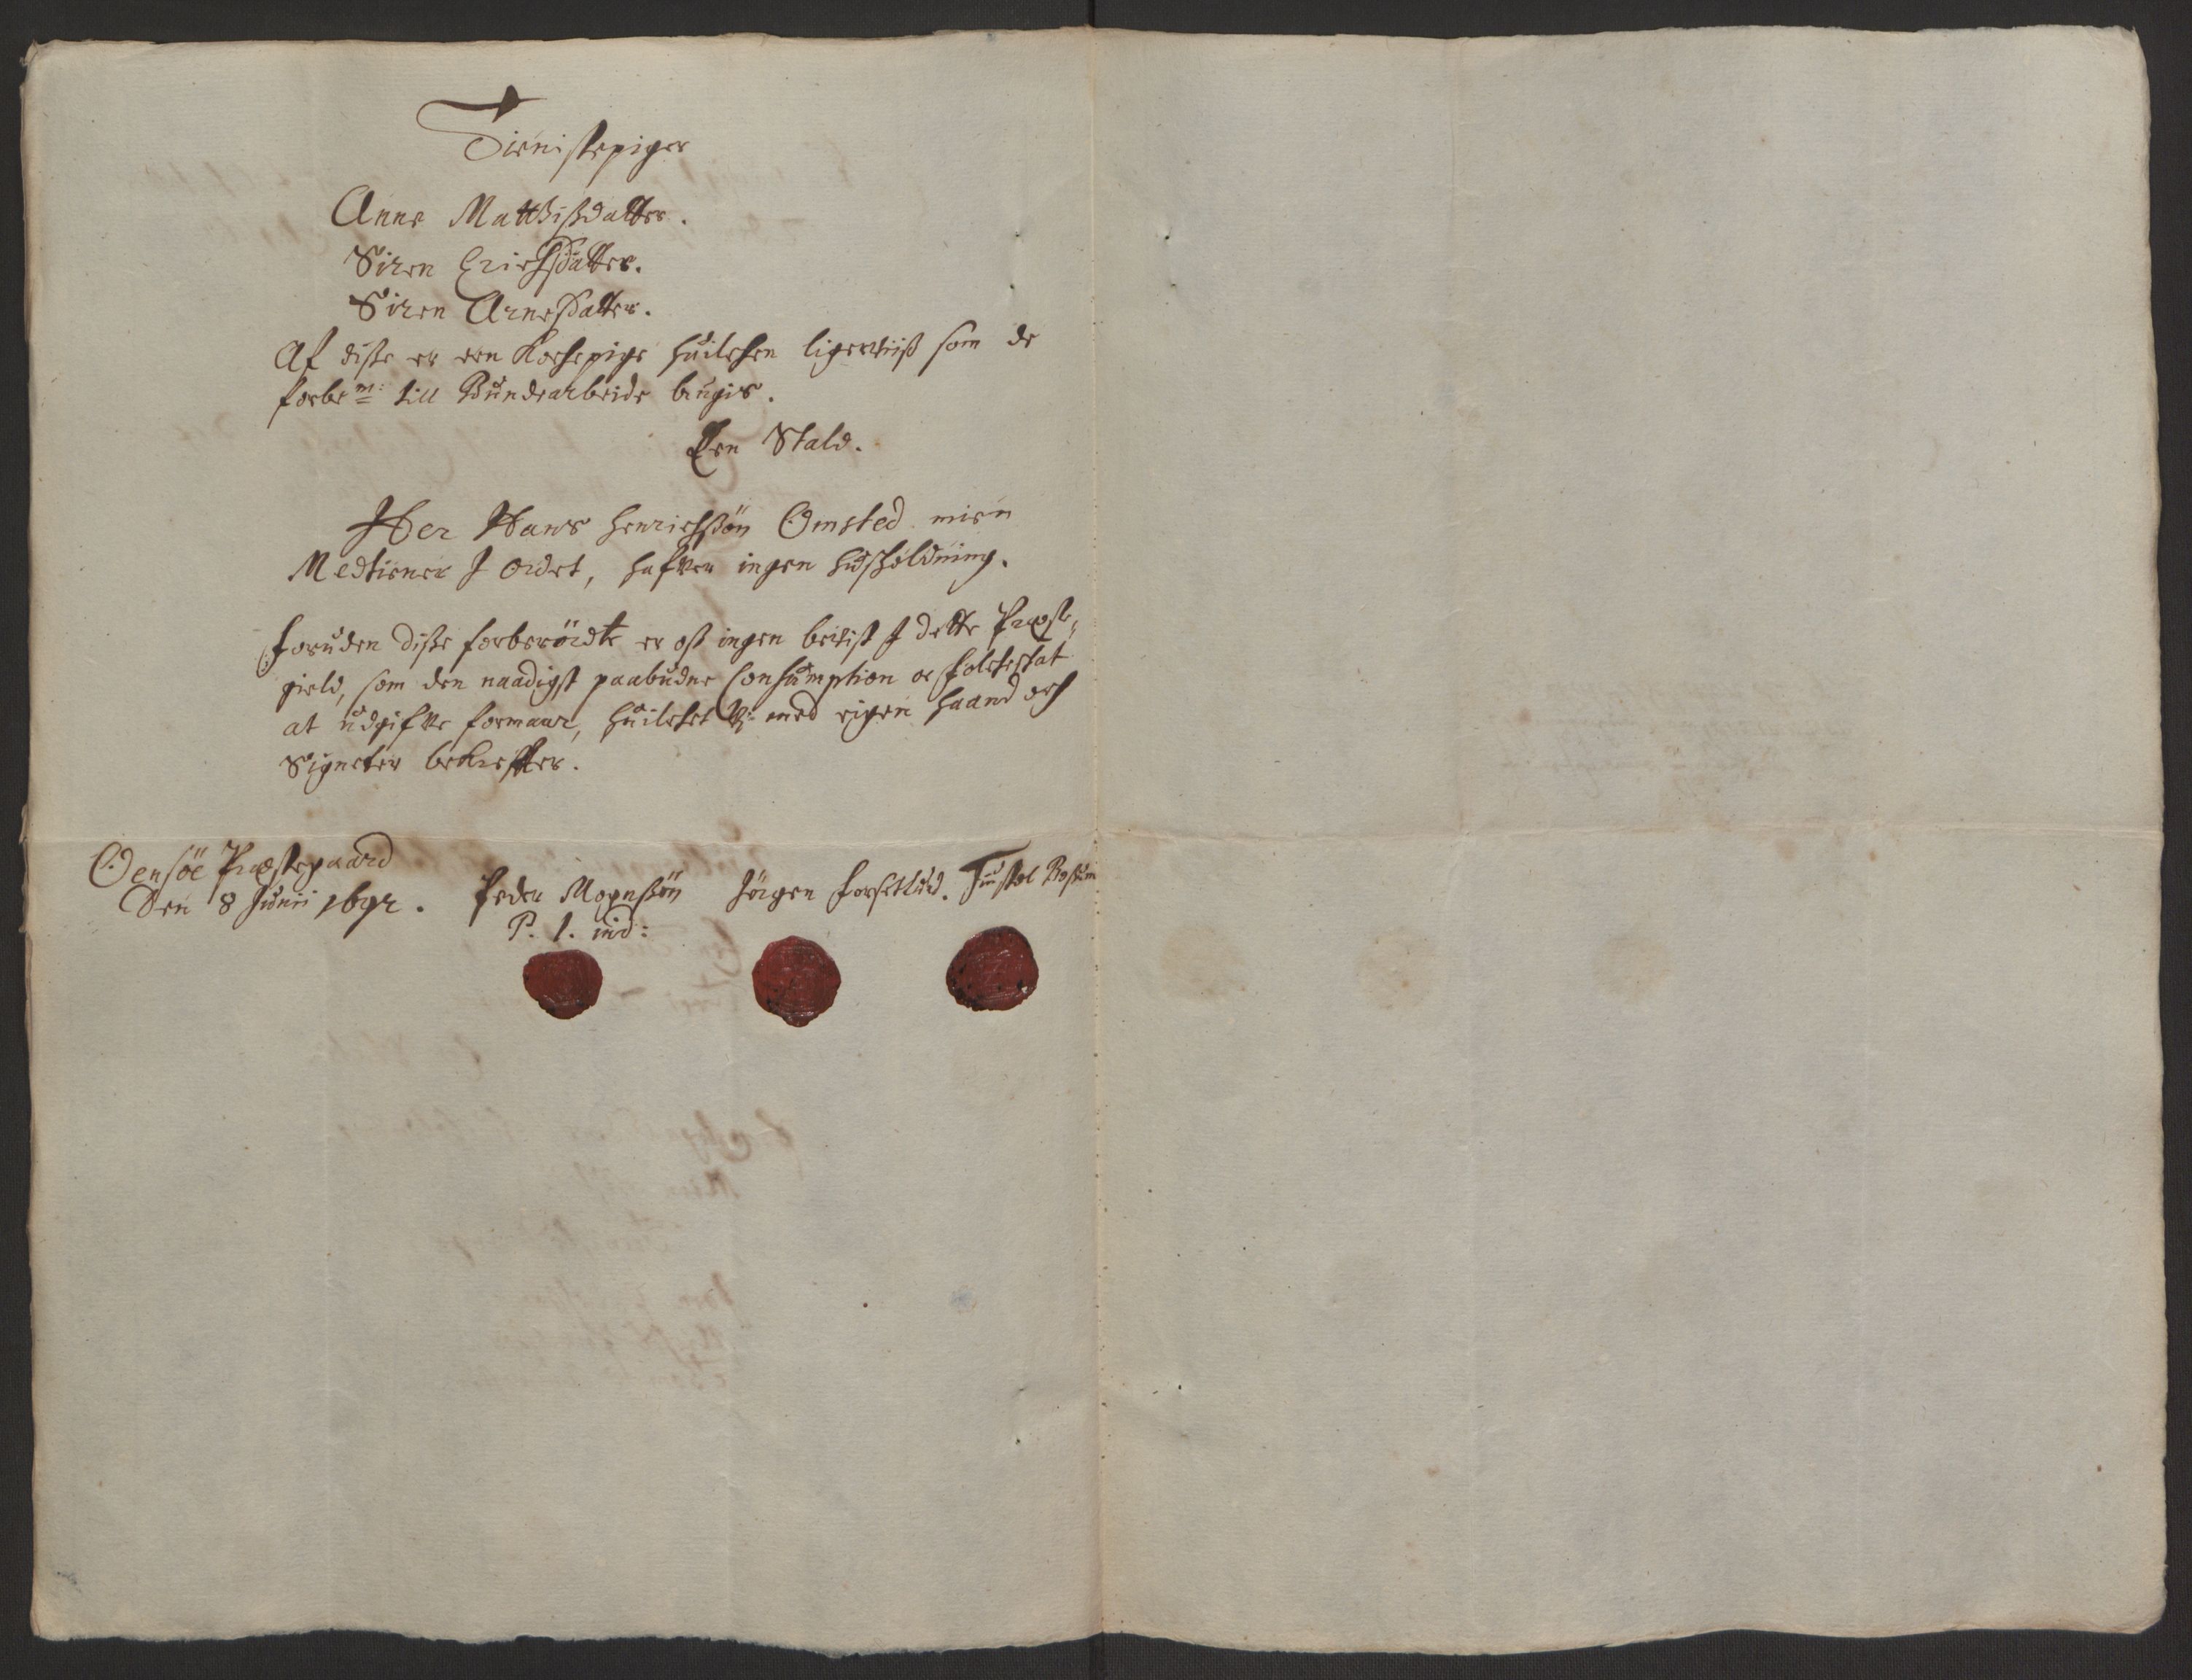 Tienistepiger
Anne Matthißdatter.
Siren Erichsdatter.
Siren Arnesdatter.
Af disse er een Kochepige huilchen ligerviiß som de
forbem: till Bunderarbeide brugis.
Een Stald.
Her Hans Henrichßön Omsted mien
Medtiener I Ordet, hafver ingen huusholdning.
Foruden disse forberördte er oß ingen bevist I dette Præste-
gield, som den naadigst paabudne Consumption oc Folcheskat
at udgifve formaar, huilchet vi med eigen haand och
Signeter bekreffter.
Odensöe Præstegaard
Den 8 Junii 1692.
Peder Mogenßön
Jörgen
P. l.